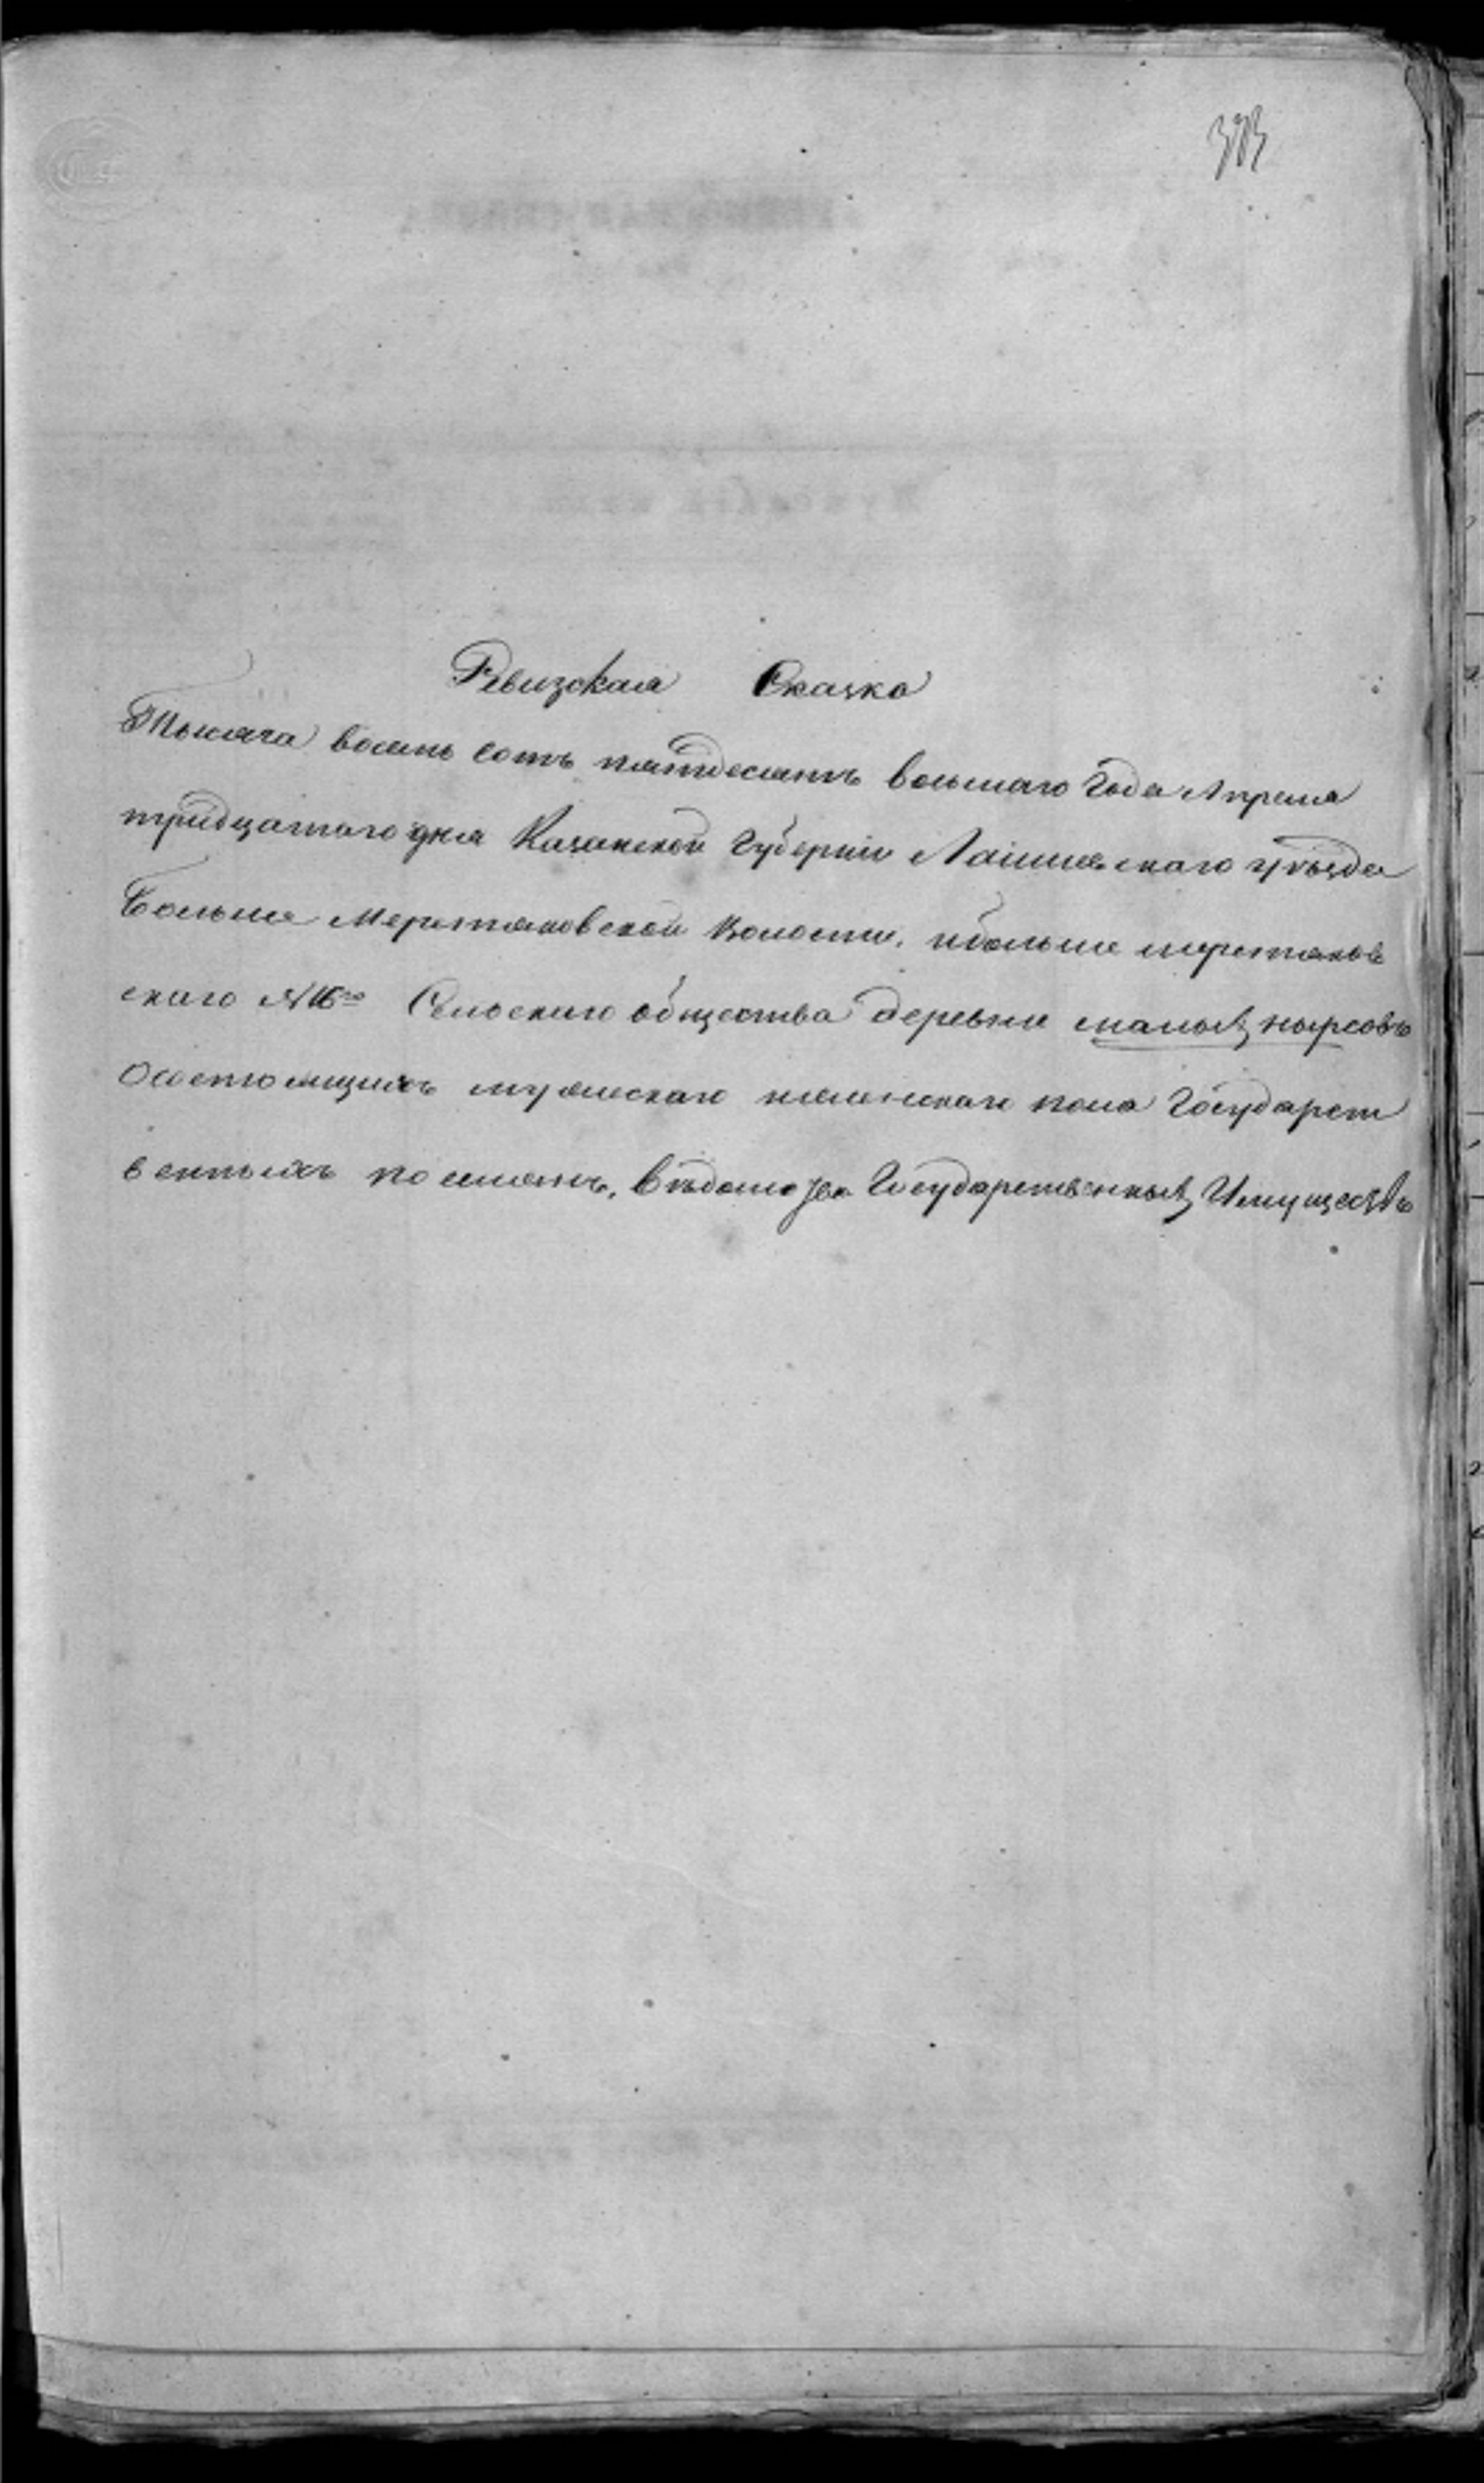 383
Ревизская Сказка
Тысяча восемь сотъ пятидесятъ восьмаго Года Апреля
тридцатаго дня Казанской Губерніи Лаишевскаго уѣзда
Больше Меретяковской Волости, ибольше меретяков
скаго №16го Сельскаго общества деревни малыхъ нырсовъ
Осостоящихъ мужескаго иженскаго пола Государст
венныхъ поселянъ, Вѣдомства Государственныхъ Имуществъ